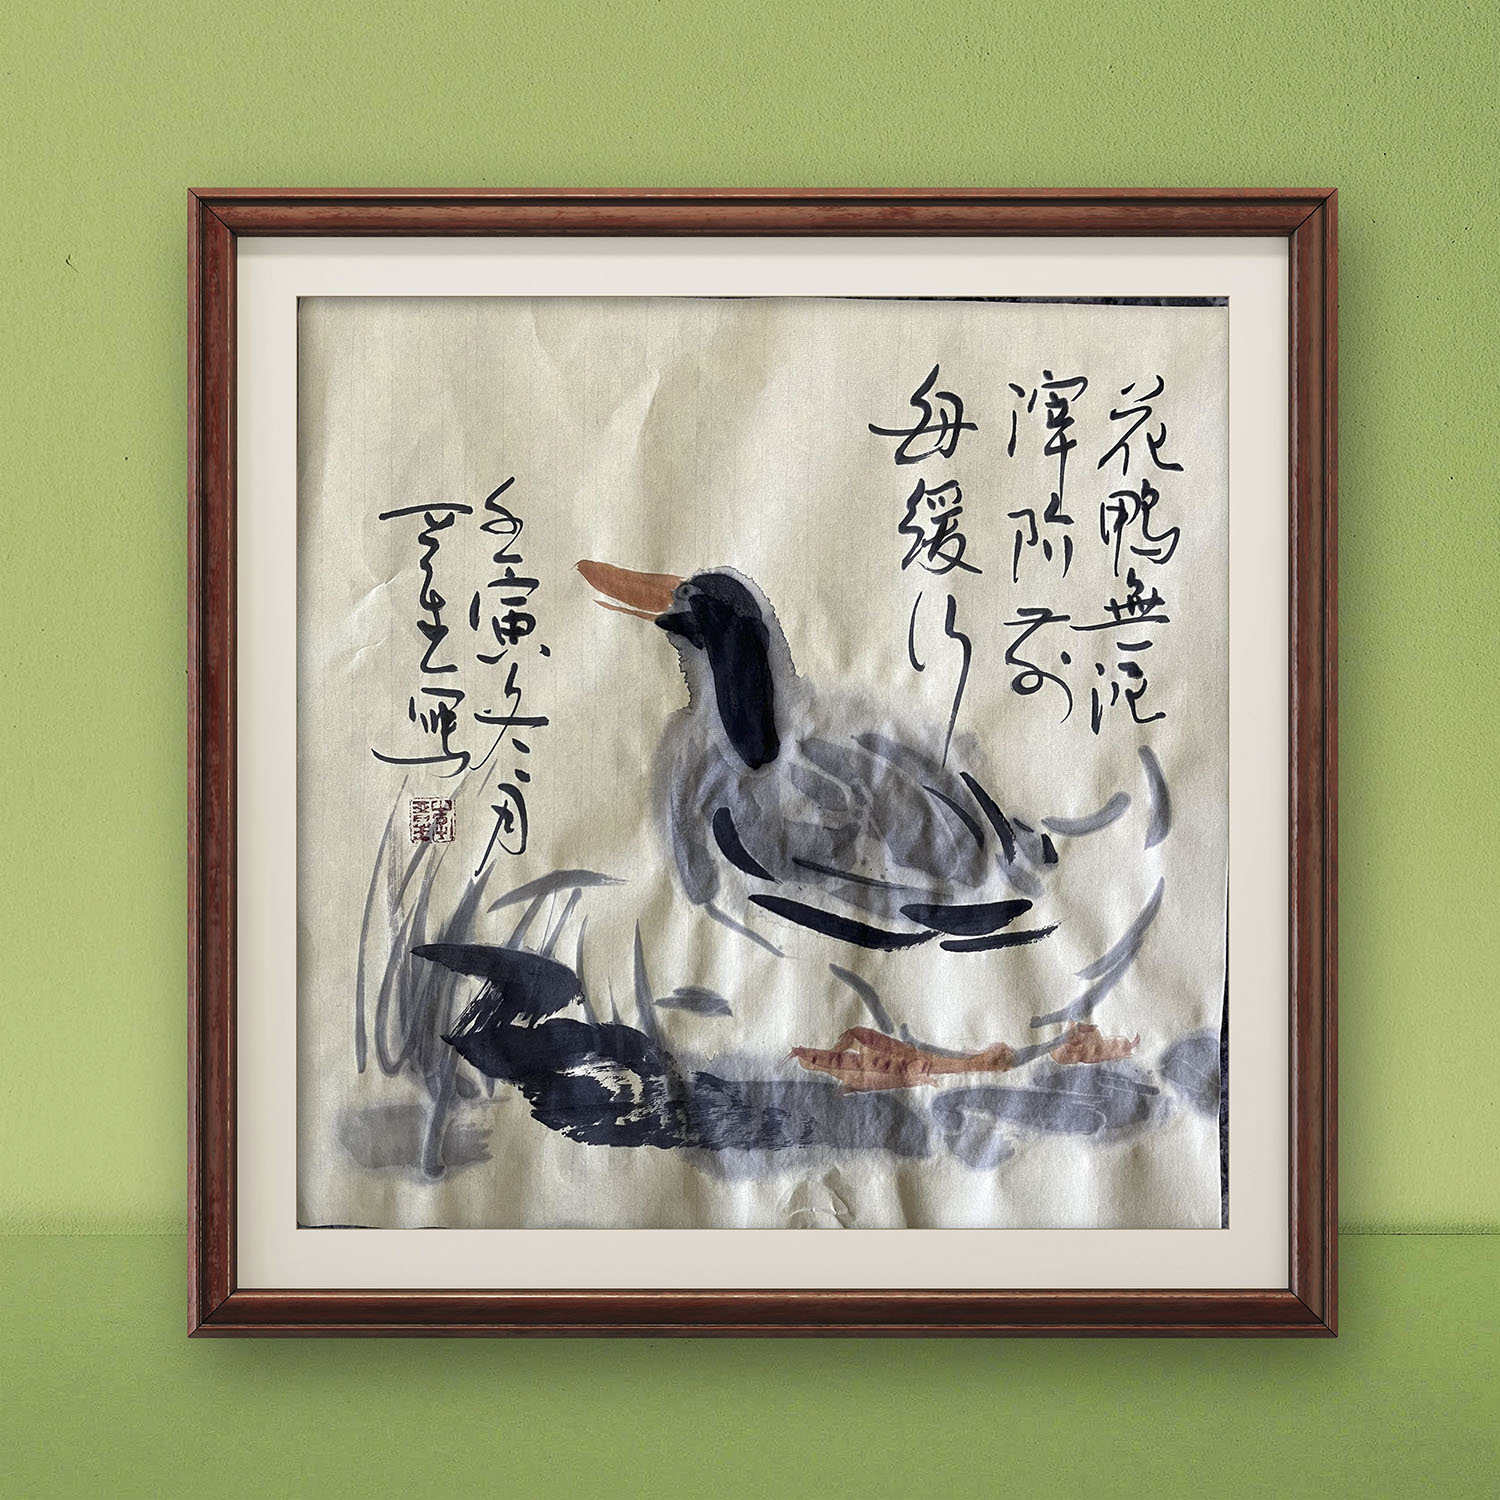 花鴨無泥
滓阶前
每緩行
壬寅冬月
生寫